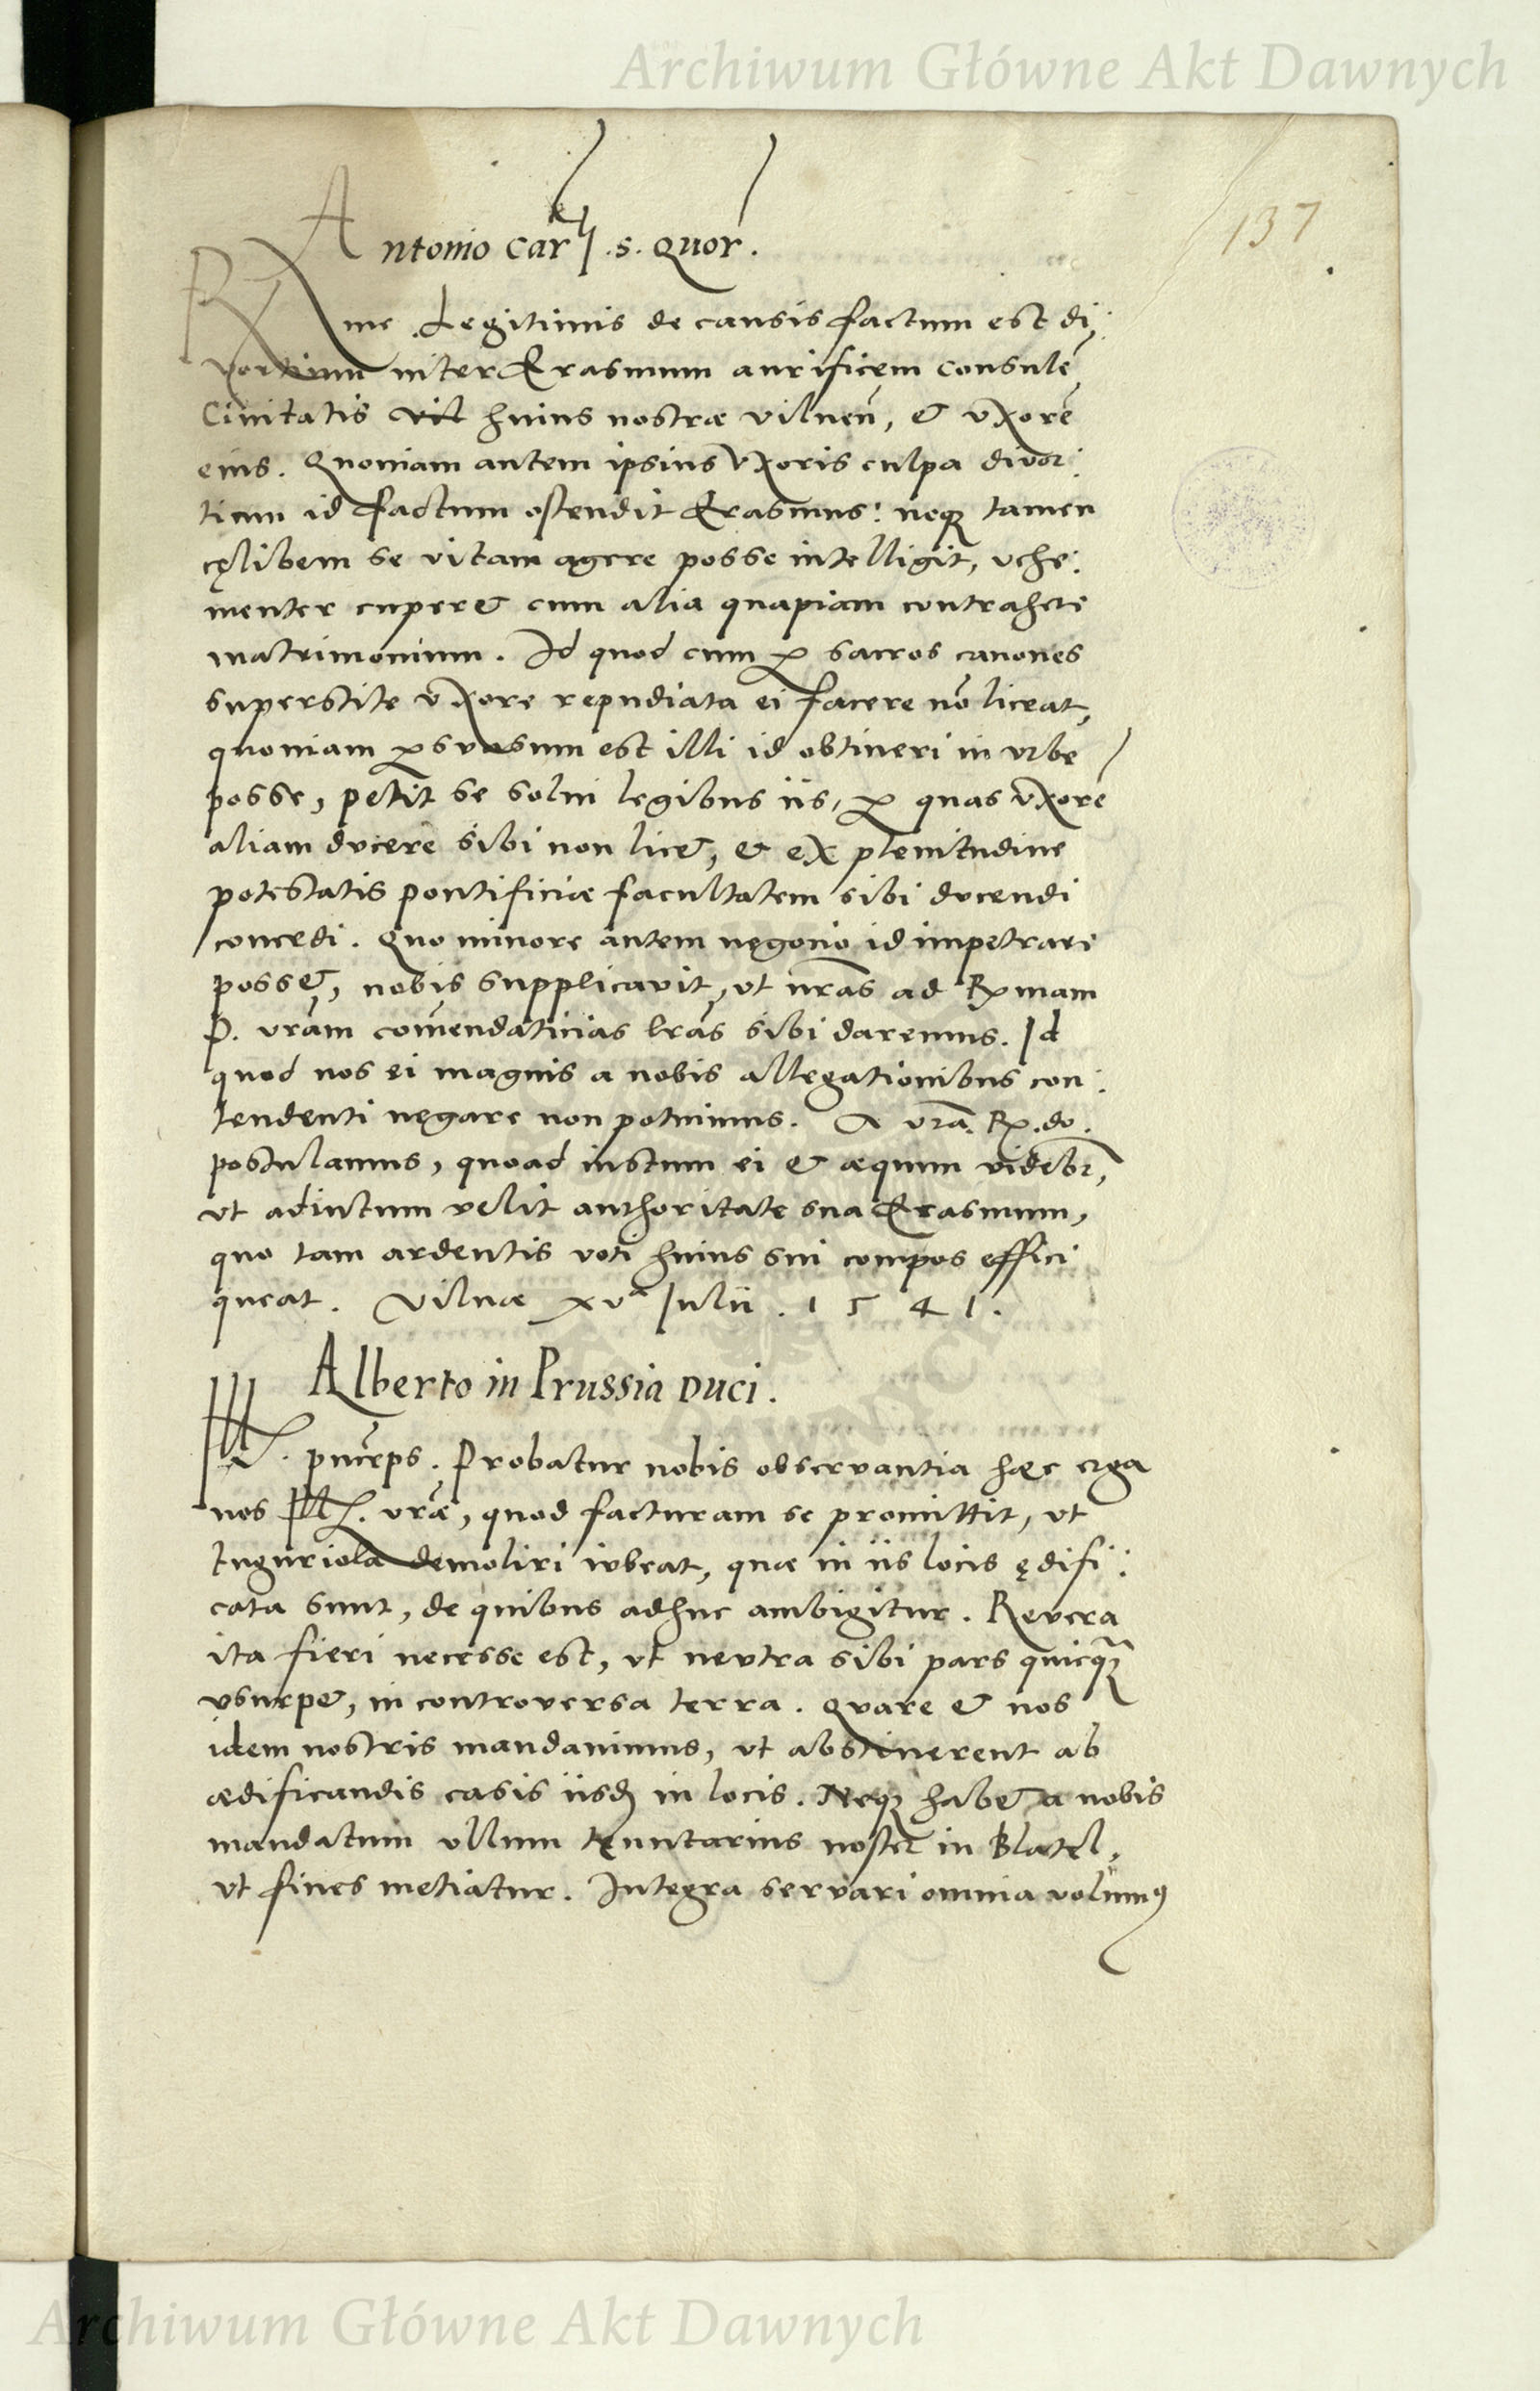 Archiwum Główne Akt Dawnych
137
Antonio Carli .s. quor.
Rme. Legitimis de causis factum est di:
vortium inter Erasmum aurificem consulē
Civitatis vil huius nostræ vilneñ, & vxorē
eius. Quoniam autem ipsius vxoris culpa divor:
tium id factum ostendit Erasmus: neqꝫ tamen
cęlibem se vitam agere posse intelligit, vehe:
menter cuperet cum alia quapiam contrahere
matrimonium. Id quod cum ꝑ sacros canones
superstite vxore repudiata ei facere nō liceat,
quoniam ꝑsuasum est illi id obtineri in vrbe
posse, petit se solui legibus iis, ꝑ quas vxorē
aliam ducere sibi non licet, & ex plenitudine
potestatis pontificiæ facultatem sibi ducendi
concedi. Quo minore autem negocio id impetrare
posset, nobis supplicavit, vt nrās ad Rmam
P. vrām com̄endaticias lrās sibi daremus. Id
quod nos ei magnis a nobis allegationibus con:
tendenti negare non potuimus. A vrā. R. do.
postulamus, quoad iustum ei & æquum videbr̄,
vt adiutum velit authoritate sua Erasmum,
quo tam ardentis voti huius sui compos effici
queat. Vilnæ xvᵃ Iulii. 1541.
Alberto in Prussia Duci.
Ill. prīceps. Probatur nobis observantia hæc erga
nos Ill. vrǣ, quod facturam se promittit, vt
tuguriola demoliri iubeat, quæ in iis locis ędifi:
cata sunt, de quibus adhuc ambigitur. Revera
ita fieri necesse est, vt neutra sibi pars quicqꝫ̄
vsurpet, in controversa terra. Quare & nos
idem nostris mandavimus, vt abstinerent ab
ædificandis casis iisd in locis. Neqꝫ habet a nobis
mandatum vllum tenutarius noster in Blatel,
vt fines metiatur. Integra servari omnia volumꝰ
Archiwum Główne Akt Dawnych